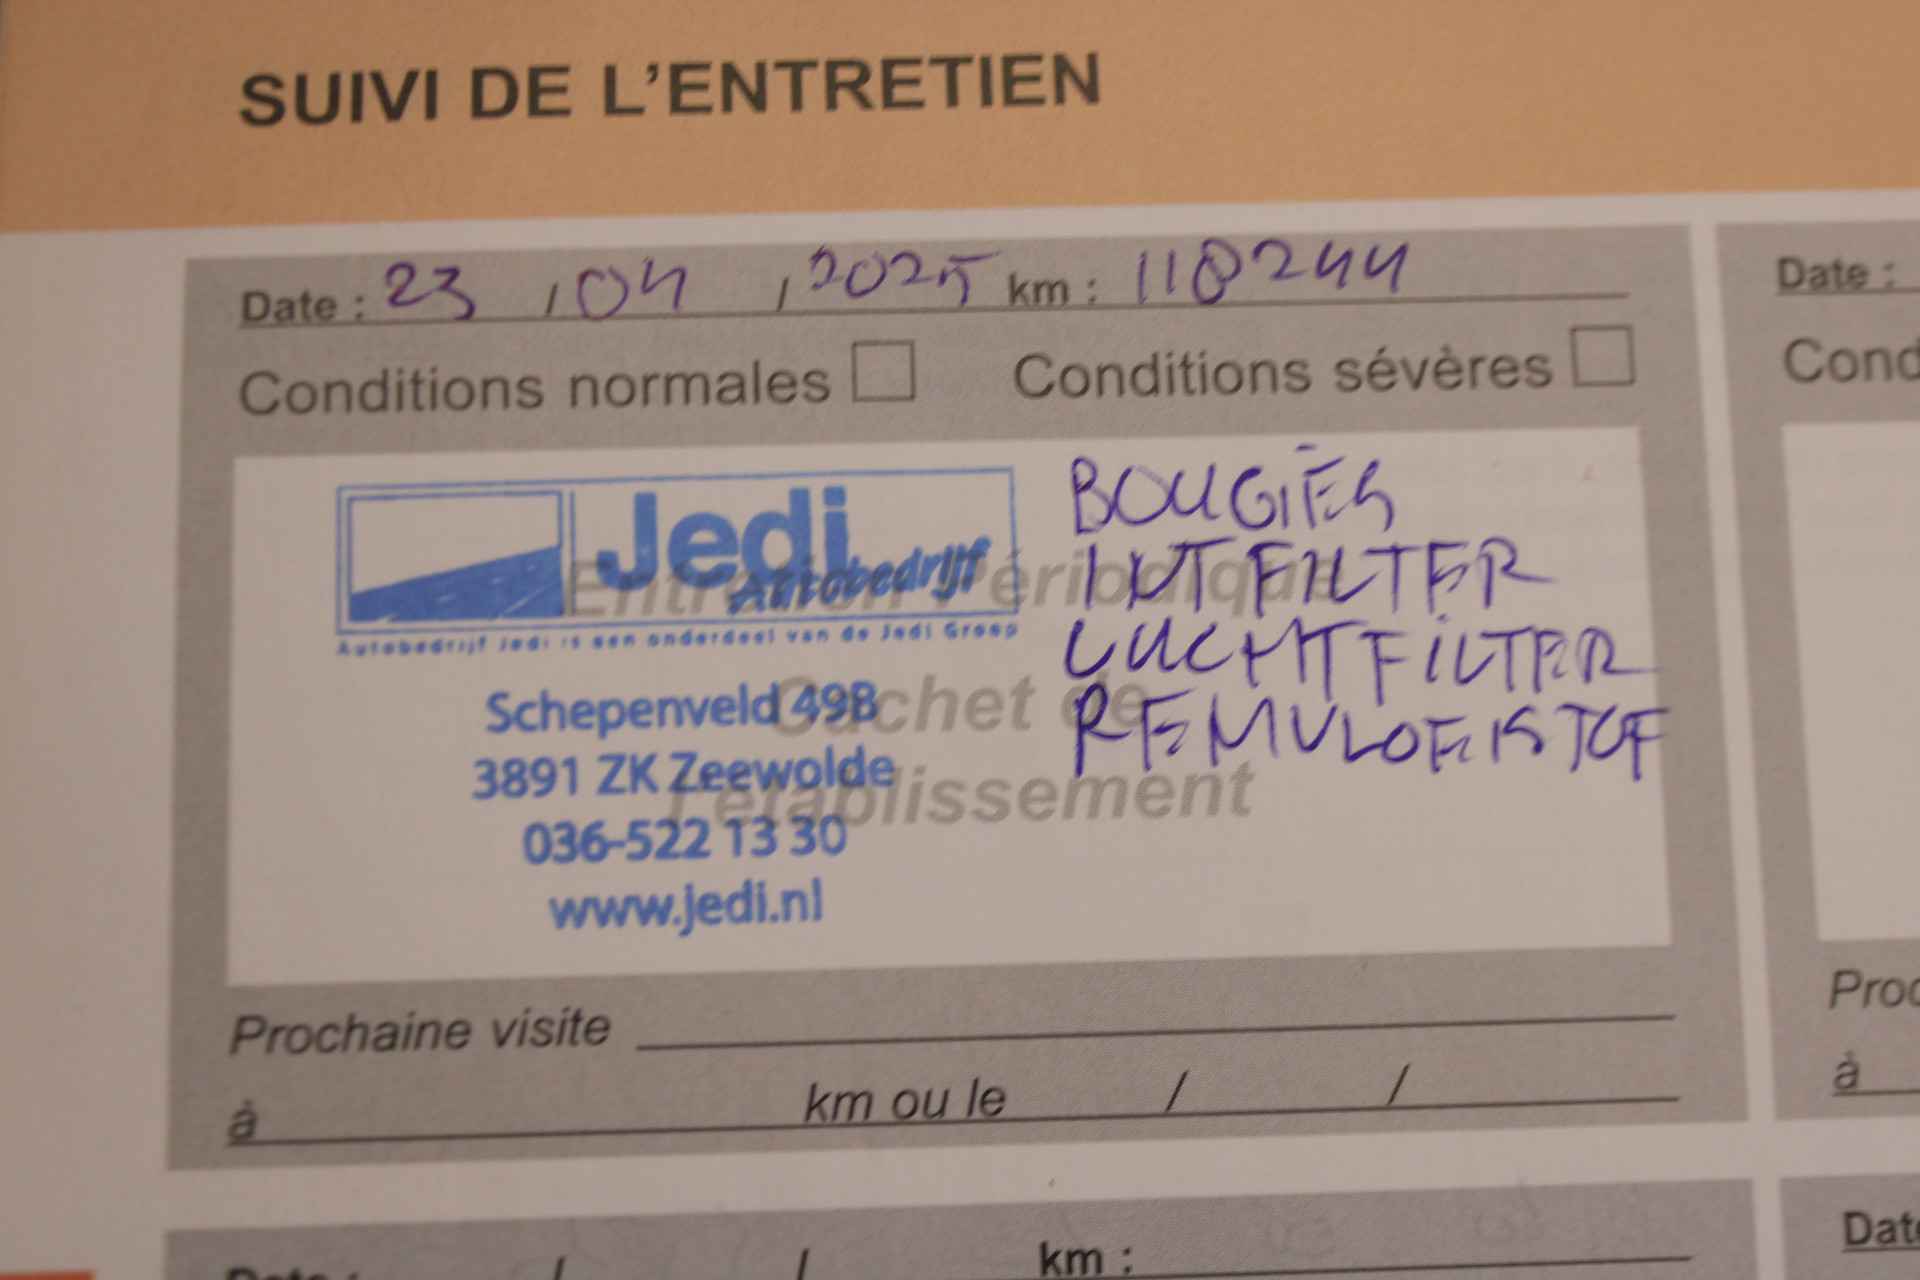 SUIVI DE L'ENTRETIEN
Date : 23 / 04 / 2025 km : 118244
Conditions normales Conditions sévères
Jedi
Autobedrijf
Autobedrijf Jedi is een onderdeel van de Jedi Groep
Schepenveld 49B
3891 ZK Zeewolde
036-522 13 30
www.jedi.nl
Entretien Périodique
Cachet de
l'établissement
BOUGIES
INT FILTER
LUCHTFILTER
REMVLOEISTOF
Prochaine visite
à km ou le / /
Date : / / km :
Date :
Cond
Proc
à
Date